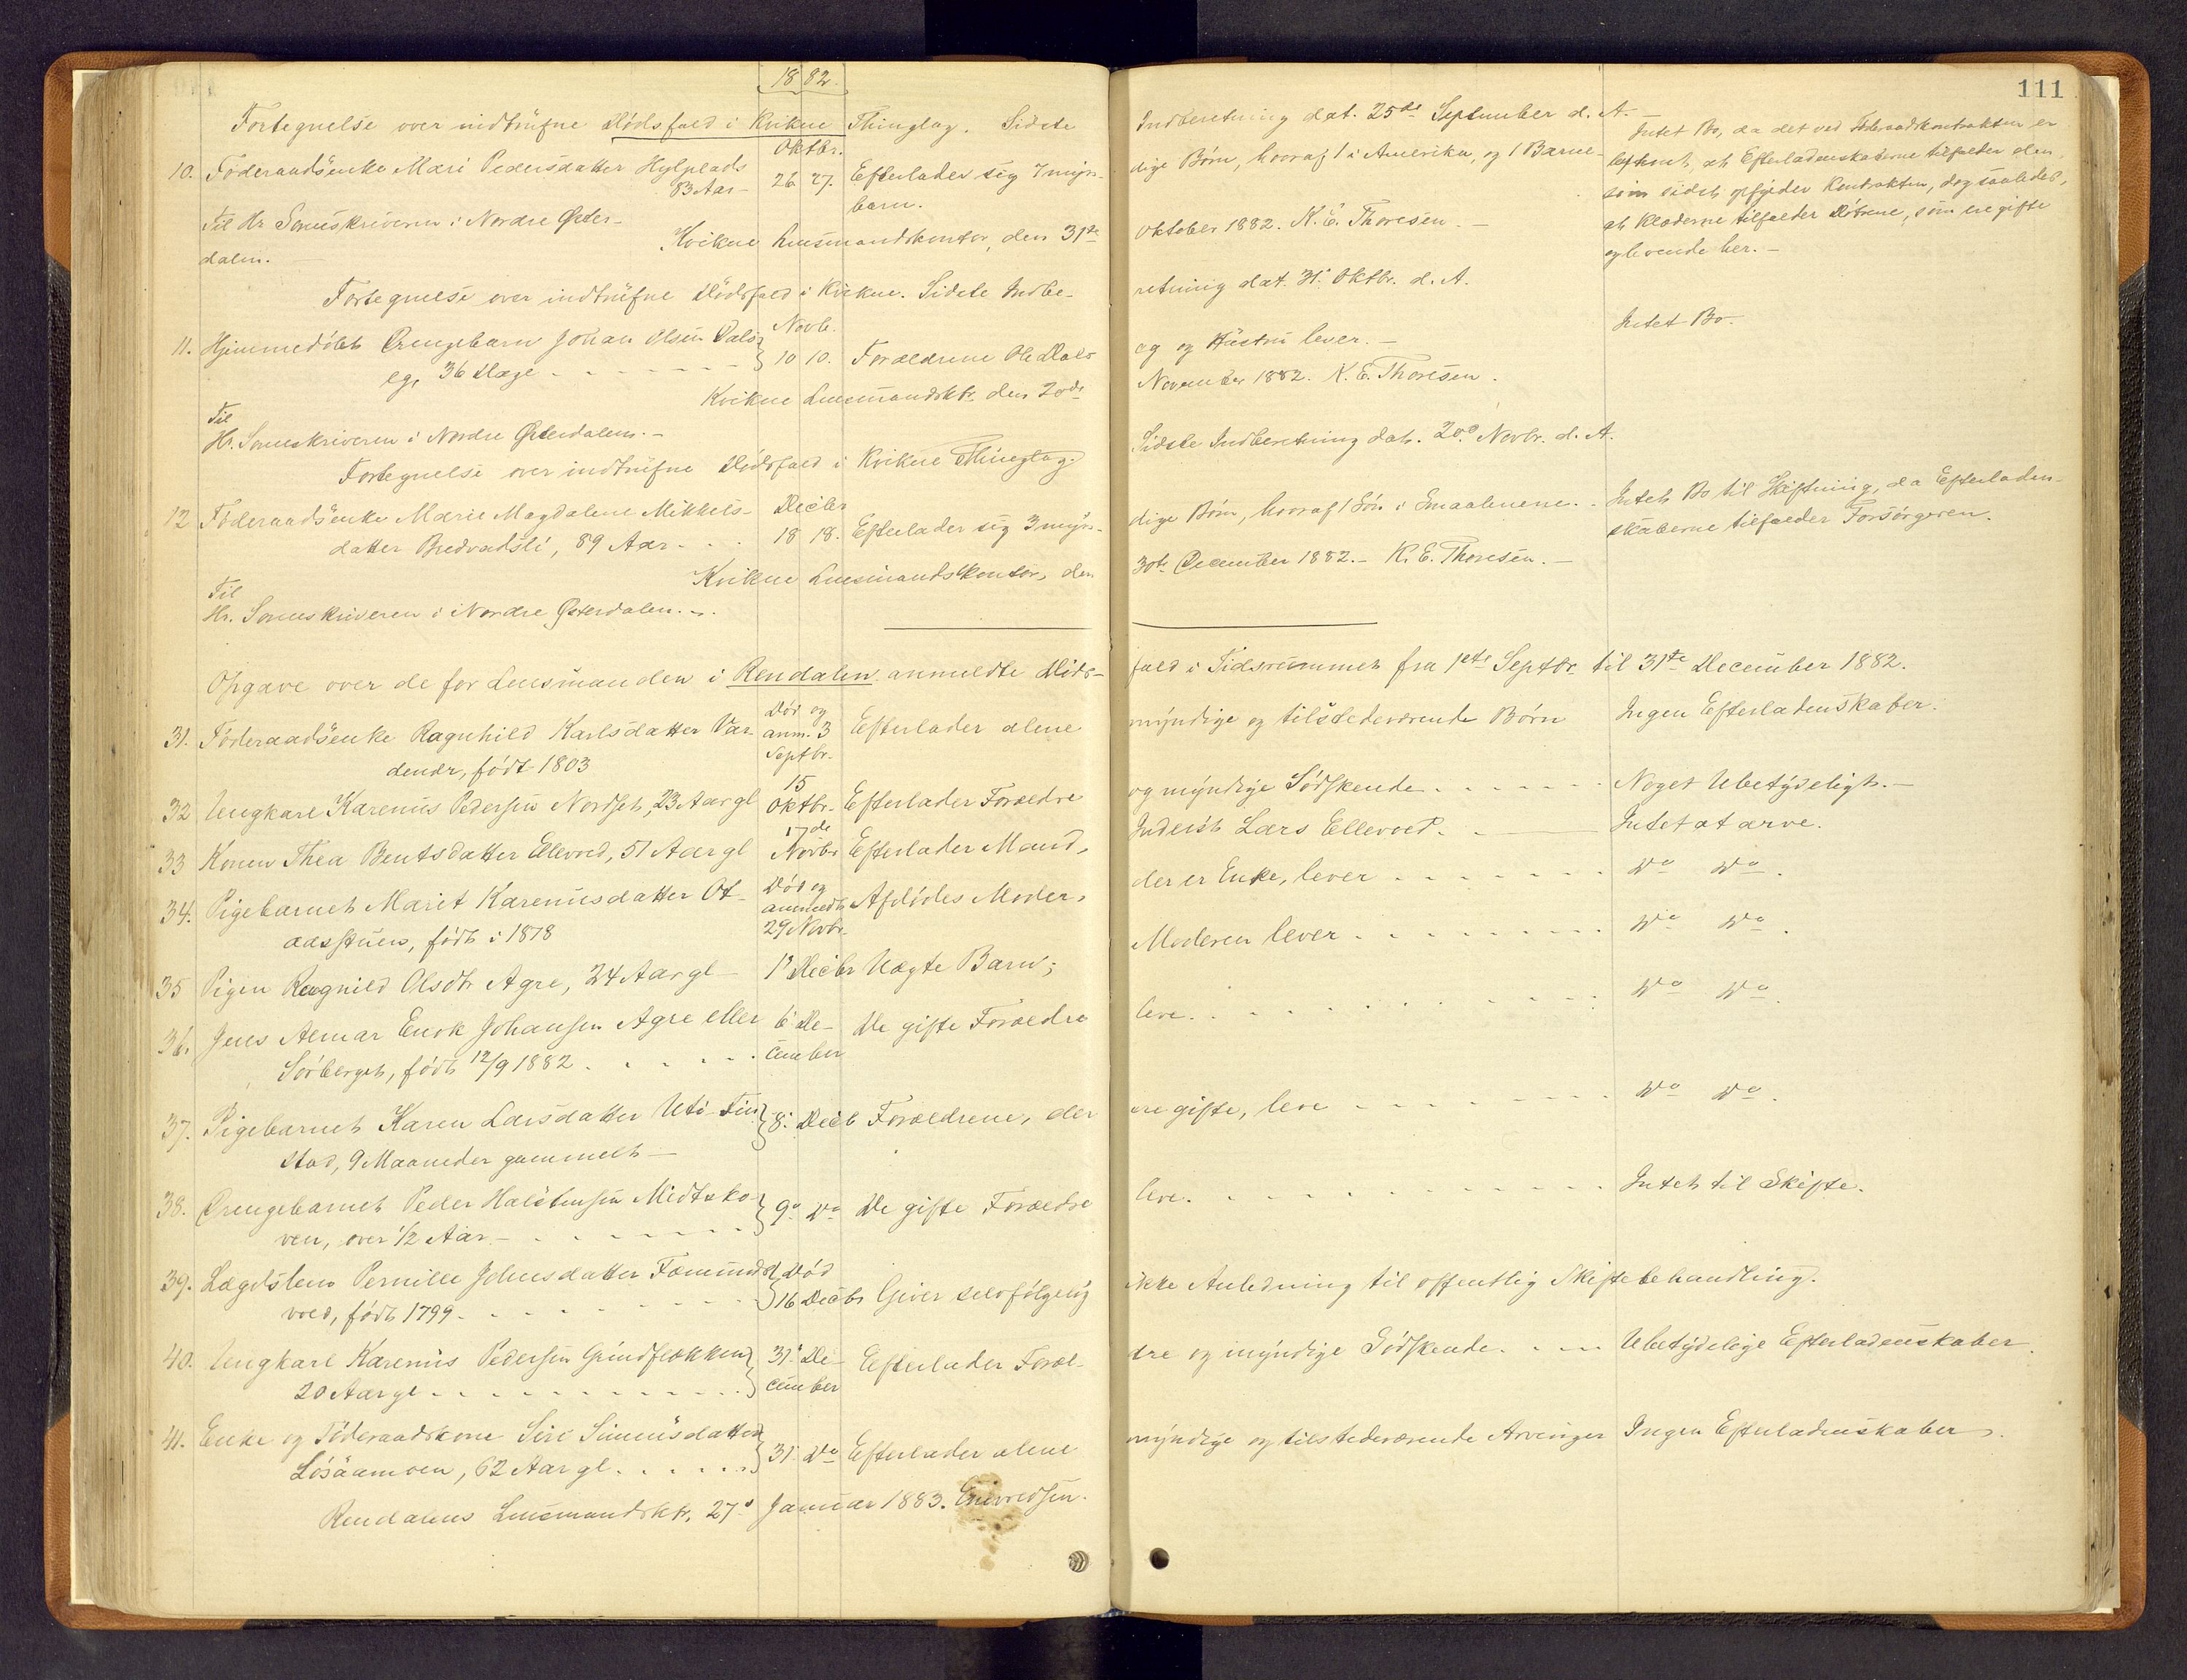 111
1882.
Fortegnelse over indtrufne Dødsfald i Kvikne Thinglag. Sidste Indberetning dat. 25de September d. A. –
Oktbr.
10. Føderaadsenke Mari Pedersdatter Hylplads 26 27. Efterlader sig 7 myn- dige Børn, hvoraf 1 i Amerika, og 1 Barne-
83 Aar – barn.
Intet Bo, da det ved Føderaadskontrakten er
bestemt, at Efterladenskaberne tilfalder den,
som sidst opfylder Kontrakten, dog saaledes,
at Klæderne tilfalder Døtrene, som ere gifte
og levende her. –
Til Hr Sorenskriveren i Nordre Øster-
dalen. –
Kvikne Lensmandskontor, den 31te Oktober 1882. K. E. Thoresen. –
Fortegnelse over indtrufne Dødsfald i Kvikne. Sidste Indbe- retning dat. 31. Oktbr. d. A.
Novb.
11. Hjemmedøbt Drengebarn Johan Olsen Dals- 10 10. Forældrene Ole Dals- eg og Hustru lever. – Intet Bo.
eg, 36 Dage - - - - - -
Kvikne Lensmandsktr. den 20de November 1882. K. E. Thoresen.
Til
Hr. Sorenskriveren i Nordre Østerdalen. –
Fortegnelse over indtrufne Dødsfald i Kvikne Thinglag. Sidste Indberetning dat. 20de Novbr. d. A.
12 Føderaadsenke Marie Magdalene Mikkels- Decbr
datter Bredvadsli, 89 Aar - - - 18 18. Efterlader sig 3 myn- dige Børn, hvoraf 1 Søn i Smaalenene. - Intet Bo til Skiftning, da Efterladen-
skaberne tilfalder Forsørgeren.
Kvikne Lensmandskontor, den 30te December 1882. – K. E. Thoresen. –
Til
Hr. Sorenskriveren i Nordre Østerdalen. –
Opgave over de for Lensmanden i Rendalen anmeldte Døds- fald i Tidsrummet fra 1ste Septbr. til 31te December 1882.
31. Føderaadsenke Ragnhild Karlsdatter Var- Død og anm. 3 Septbr. Efterlader alene myndige og tilstedeværende Børn Ingen Efterladenskaber.
denær, født 1803
32 Ungkarl Karenus Pedersen Nordset, 23 Aar gl 15 Oktbr. Efterlader Forældre og myndige Sødskende - - - - - Noget Ubetydeligt. –
33 Konen Thea Bentsdatter Ellevold, 51 Aar gl 17de Novbr Efterlader Mand, Inderst Lars Ellevold. - Intet at arve.
34. Pigebarnet Marit Karenusdatter Ot- Død og anmeldt 29 Novbr. Afdødes Moder, der er Enke, lever - - - - - - Do Do.
aasstuen, født i 1878
35 Pigen Ragnild Olsdtr Agre, 24 Aar gl – 1' Decbr Uægte Barn; Moderen lever - - - - - - Do Do.
36. Jens Almar Enok Johansen Agre eller 6' De- De gifte Forældre leve. - - - - - - Do Do.
Sørberget, født 12/9 1882 - - - - cember
37. Pigebarnet Karen Larsdatter Uti-Fin- 8. Decb Forældrene, der ere gifte, leve - - - - - - Do Do.
stad, 9 Maaneder gammelt –
38. Drengebarnet Peder Halstensen Midtsko- 9de Do De gifte Forældre leve. - - - - - - Intet til Skifte.
ven, over 1/2 Aar - - - - - -
39. Lægdslem Pernille Johnsdatter Fæmunds- Død 16 Decbr Giver selvfølgelig ikke Anledning til offentlig Skiftebehandling.
vold, født 1799 - - - - - -
40. Ungkarl Karenus Pedersen Grindflækken 31. De- Efterlader Foræl- dre og myndige Sødskende. - - - Ubetydelige Efterladenskaber.
20 Aar gl - - - - - - cember
41. Enke og Føderaadskone Siri Simensdatter 31. Do Efterlader alene myndige og tilstedeværende Arvinger Ingen Efterladenskaber.
Løsaamoen, 62 Aar gl. - - - - -
Rendalens Lensmandsktr. 27' Januar 1883. Enevoldsen.